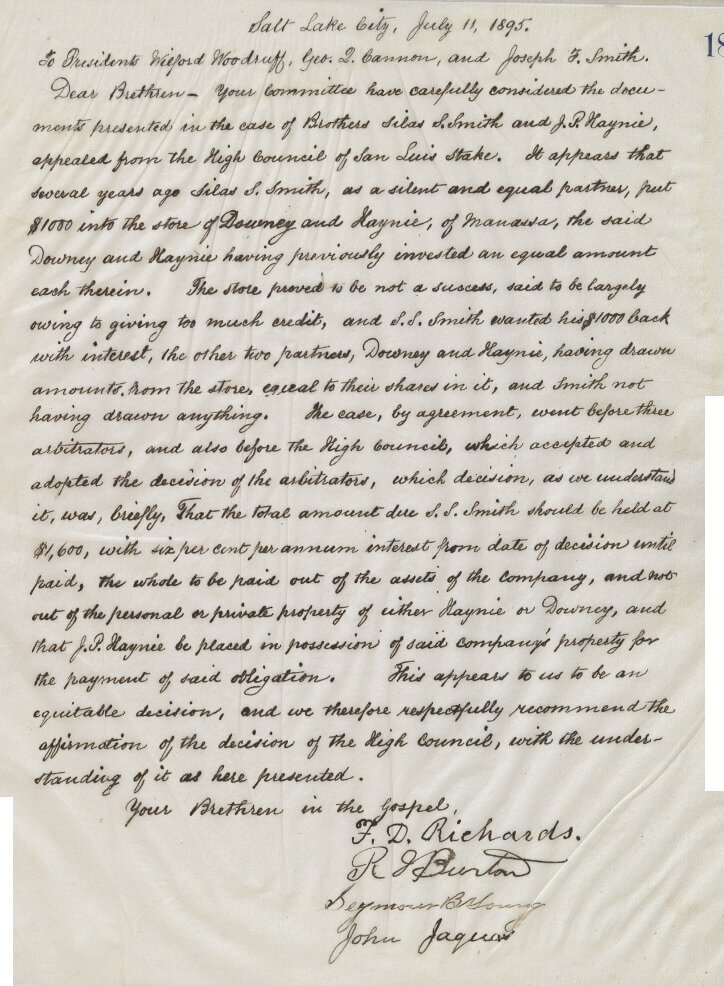 Salt Lake City, July 11, 1895.
18
To Presidents Wilford Woodruff, Geo. Q. Cannon, and Joseph F. Smith.
Dear Brethren – Your Committee have carefully considered the docu-
ments presented in the case of Brothers Silas S. Smith and J. P. Haynie,
appealed from the High Council of San Luis Stake. It appears that
several years ago Silas S. Smith, as a silent and equal partner, put
$1000 into the store of Downey and Haynie, of Manassa, the said
Downey and Haynie having previously invested an equal amount
each therein. The store proved to be not a success, said to be largely
owing to giving too much credit, and S. S. Smith wanted his $1000 back
with interest, the other two partners, Downey and Haynie, having drawn
amounts from the store, equal to their shares in it, and Smith not
having drawn anything. The case, by agreement, went before three
arbitrators, and also before the High Council, which accepted and
adopted the decision of the arbitrators, which decision, as we understand
it, was, briefly, That the total amount due S. S. Smith should be held at
$1,600, with six per cent per annum interest from date of decision until
paid, the whole to be paid out of the assets of the company, and not
out of the personal or private property of either Haynie or Downey, and
that J. P. Haynie be placed in possession of said company's property for
the payment of said obligation. This appears to us to be an
equitable decision, and we therefore respectfully recommend the
affirmation of the decision of the High Council, with the under-
standing of it as here presented.
Your Brethren in the Gospel,
F. D. Richards.
R T Burton
Seymour B Young
John Jaques